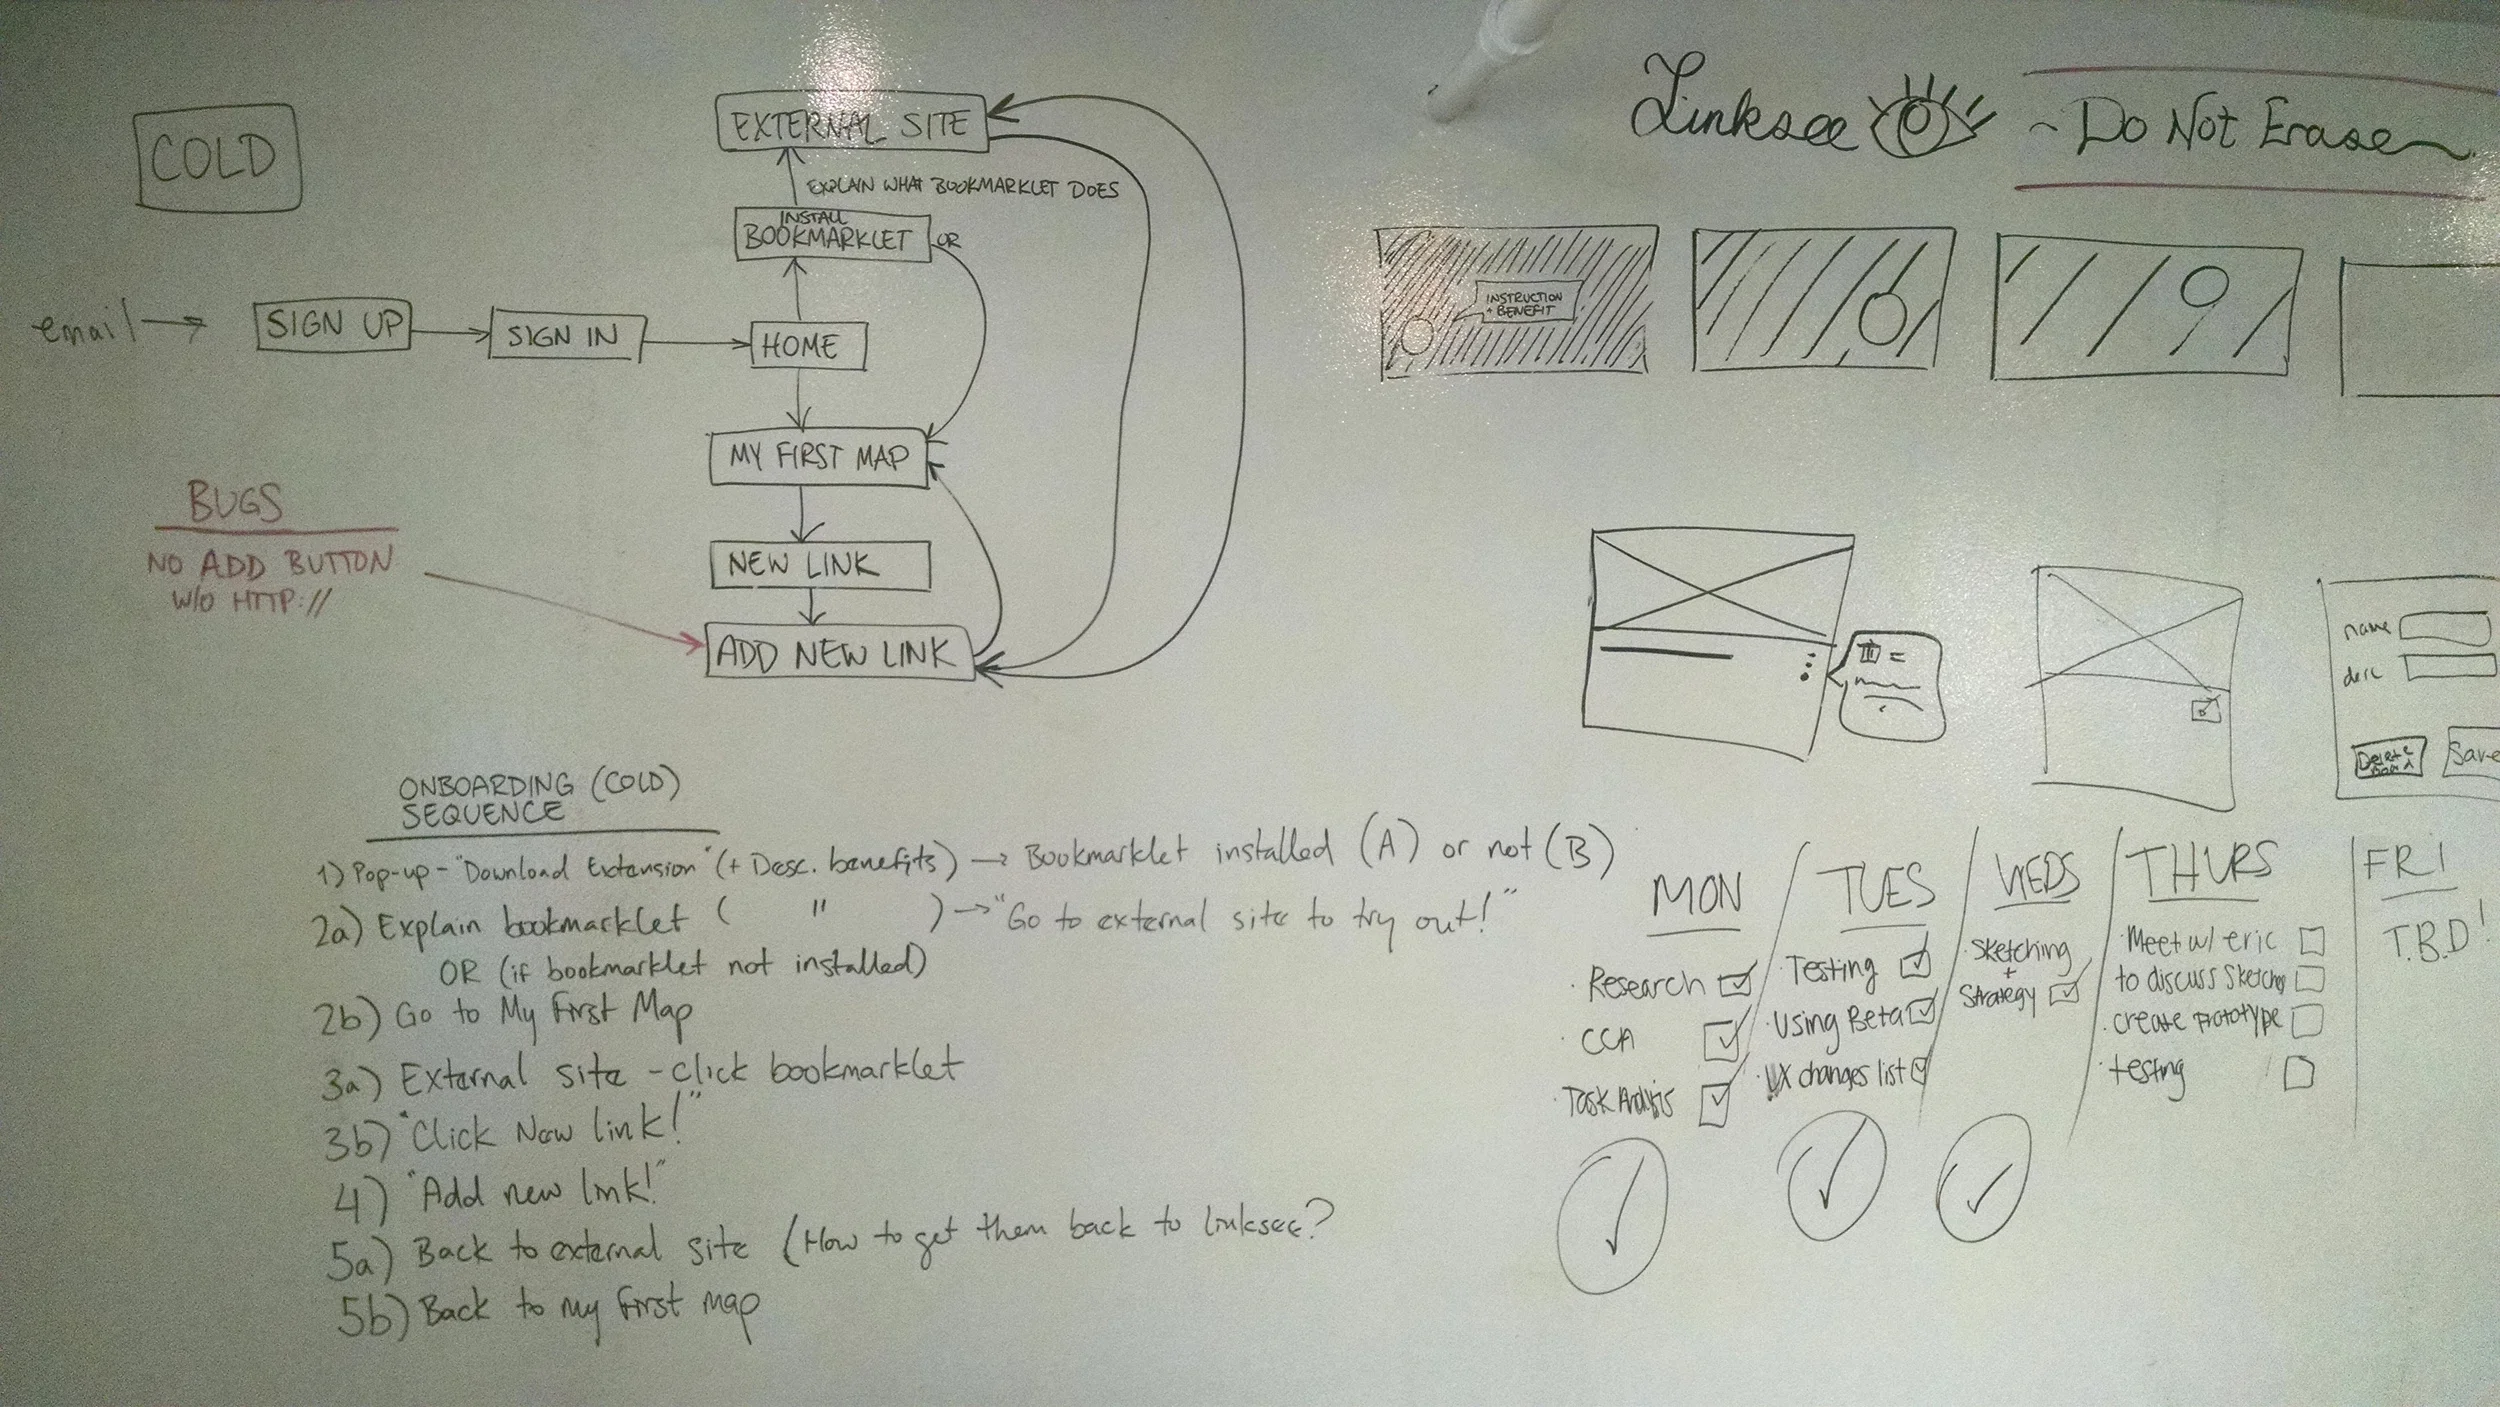 COLD
email
SIGN UP
SIGN IN
HOME
EXTERNAL SITE
EXPLAIN WHAT BOOKMARKLET DOES
INSTALL
BOOKMARKLET
OR
MY FIRST MAP
NEW LINK
ADD NEW LINK
BUGS
NO ADD BUTTON
W/O HTTP://
Linksee
~ Do Not Erase
INSTRUCTION
+ BENEFIT
name
desc
Delete
Save
ONBOARDING (COLD)
SEQUENCE
1) Pop-up - "Download Extension" (+ Desc. benefits) → Bookmarklet installed (A) or not (B)
2a) Explain bookmarklet ( " ) → "Go to external site to try out!"
OR (if bookmarklet not installed)
2b) Go to My First Map
3a) External site - click bookmarklet
3b) "Click New link!"
4) "Add new link!"
5a) Back to external site (How to get them back to linksee?
5b) Back to my first map
MON
· Research
· CCA
· Task Analysis
TUES
· Testing
· Using Beta
· UX changes list
WEDS
· Sketching
+
Strategy
THURS
· Meet w/ eric
to discuss sketches
· create prototype
· testing
FRI
T.B.D!